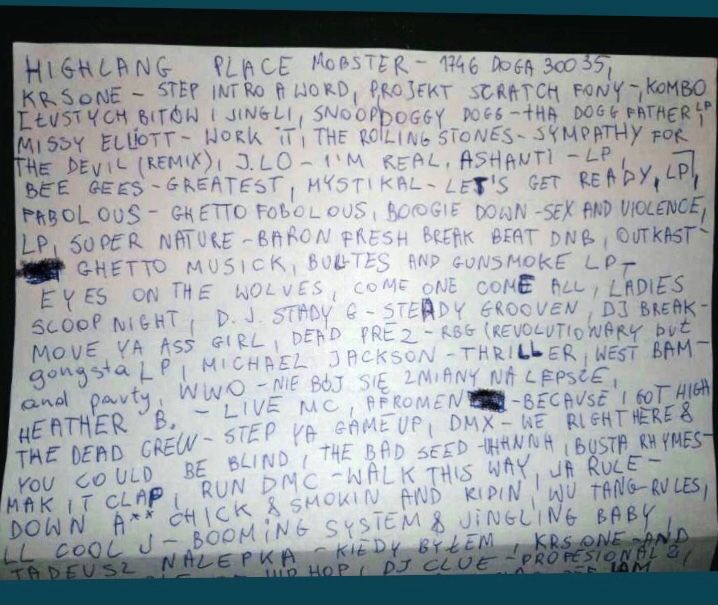 HIGHLANG PLACE MOBSTER - 1746 DOGA 30035,
KRSONE - STEP INTRO A WORD, PROJEKT SCRATCH FONY -, KOMBO
TŁUSTYCH BITÓW I JINGLI, SNOOP DOGGY DOGG - THA DOGG FATHER, LP
MISSY ELLIOTT - WORK IT, THE ROLLING STONES - SYMPATHY FOR
THE DEVIL (REMIX), J.LO - I'M REAL, ASHANTI - LP,
BEE GEES - GREATEST, MYSTIKAL - LET'S GET READY, LP,
FABOLOUS - GHETTO FOBOLOUS, BOOGIE DOWN - SEX AND VIOLENCE,
LP, SUPER NATURE - BARON FRESH BREAK BEAT DNB, OUTKAST -
GHETTO MUSICK, BULTES AND GUNSMOKE LP -
EYES ON THE WOLVES, COME ONE COME ALL, LADIES
SCOOP NIGHT, D.J. STADY G - STEADY GROOVEN, DJ BREAK -
MOVE YA ASS GIRL, DEAD PREZ - RBG (REVOLUTIONARY but
gangsta LP, MICHAEL JACKSON - THRILLER, WEST BAM -
and party, WWO - NIE BÓJ SIĘ ZMIANY NA LEPSZE,
HEATHER B. - LIVE MC, AFROMEN - BECAUSE I GOT HIGH
THE DEAD CREW - STEP YA GAME UP, DMX - WE RIGHT HERE &
YOU COULD BE BLIND, THE BAD SEED - UHNNNH, BUSTA RHYMES -
MAK IT CLAP, RUN DMC - WALK THIS WAY, JA RULE -
DOWN A** CHICK & SMOKIN AND RIDIN, WU TANG - RULES,
LL COOL J - BOOMING SYSTEM & JINGLING BABY,
TADEUSZ NALEPKA - KIEDY BYŁEM, KRS ONE - AND
HIP HOP, DJ CLUE - PROFESIONAL 2,
JAM